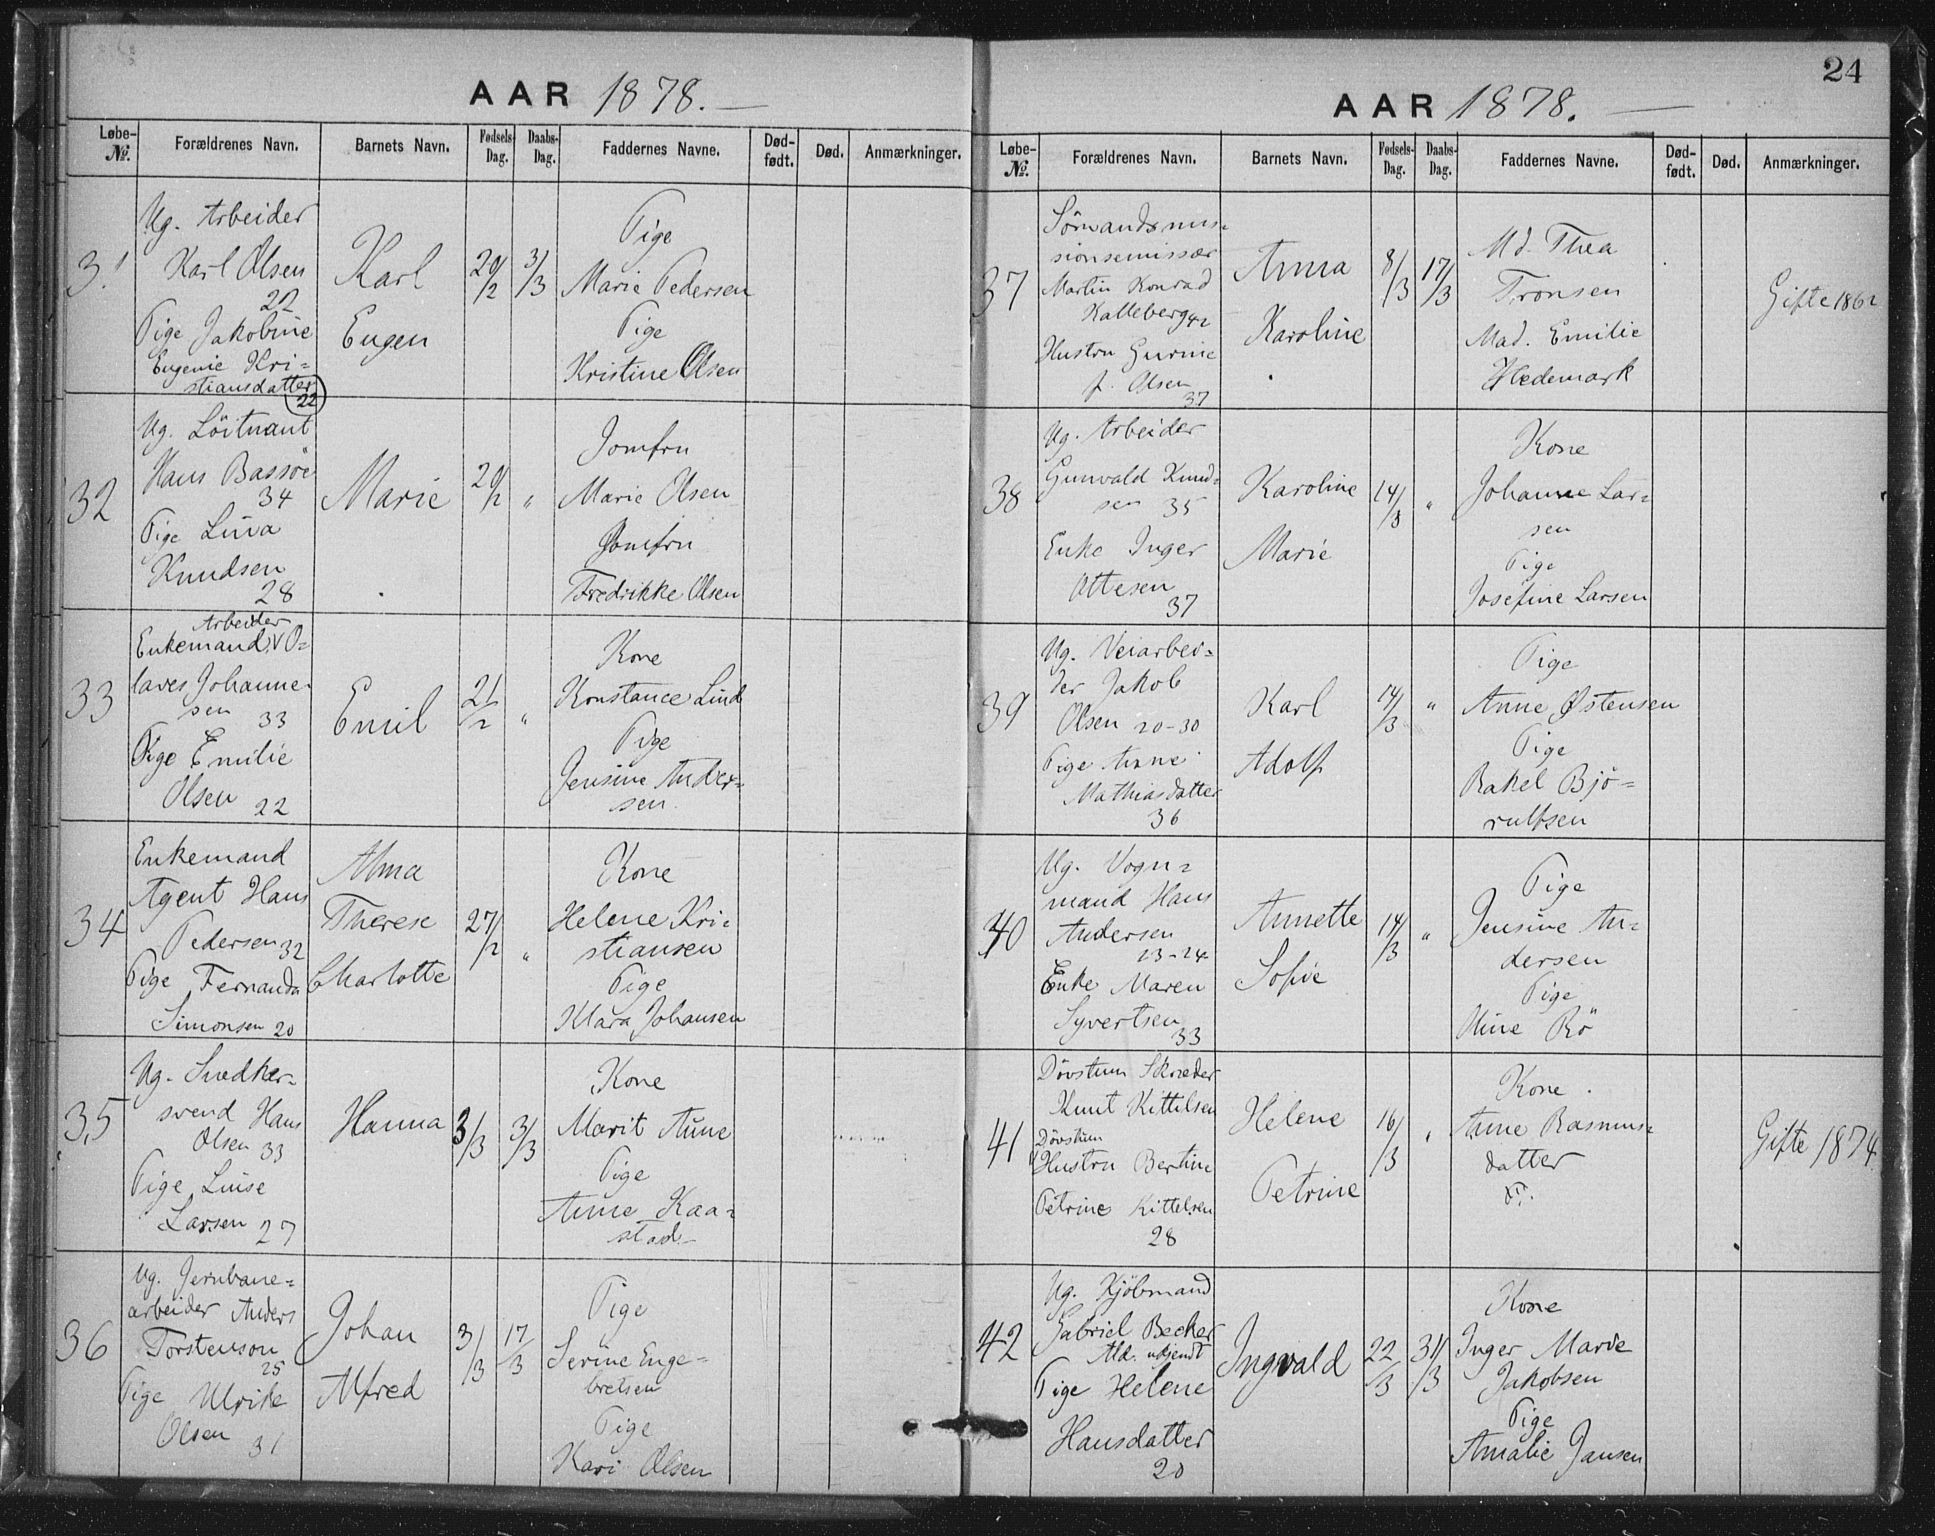 AAR 1878.
Løbe-No. Forældrenes Navn. Barnets Navn. Fødsels-Dag. Daabs-Dag. Faddernes Navne. Død-født. Død. Anmærkninger.
31
Ug. Arbeider
Karl Olsen
22
Pige Jakobine
Eugenie Kri=
stiansdatter
22
Karl
Eugen
20/2
3/3
Pige
Marie Pedersen
Pige
Kristine Olsen
32
Ug. Löitnant
Hans Bassöe
34
Pige Lina
Knudsen
28
Marie
20/2
"
Jomfru
Marie Olsen
Jomfru
Fredrikke Olsen
33
Arbeider
Enkemand, O=
laves Johanne
sen 33
Pige Emilie
Olsen 22
Emil
21/2
"
Kone
Konstance Lind
Pige
Jensine Ander=
sen.
34
Enkemand
Agent Hans
Pedersen 32
Pige Fernanda
Simonsen 20
Alma
Therese
Charlotte
27/2
"
Kone
Helene Kri=
stiansen
Pige
Klara Johansen
35
Ug. Snedker=
svend Hans
Olsen 33
Pige Luise
Larsen 27
Hanna
3/3
3/3
Kone
Marit Aune
Pige
Anne Kaa=
stad
36
Ug. Jernbane=
arbeider Anders
Torstenson
25
Pige Ulrike
Olsen 31
Johan
Alfred
3/3
17/3
Pige
Serine Enge=
bretsen
Pige
Kari Olsen
24
AAR 1878.
Løbe-No. Forældrenes Navn. Barnets Navn. Fødsels-Dag. Daabs-Dag. Faddernes Navne. Død-født. Død. Anmærkninger.
37
Sömandsmis=
sionsemissær
Martin Konrad
Kalleberg 42
Hustru Gurine
f. Olsen
37
Anna
Karoline
8/3
17/3
Md. Thea
Tronsen
Mad. Emilie
Hedemark
Gifte 1862
38
Ug. Arbeider
Gunvald Knud=
sen 35
Enke Inger
Ottesen
37
Karoline
Marie
14/3
"
Kone
Johanne Lar=
sen
Pige
Josefine Larsen
39
Ug. Veiarbei=
der Jakob
Olsen 20-30
Pige Anne
Mathiasdatter
36
Karl
Adolf
14/3
"
Pige
Anne Østensen
Pige
Rakel Bjö=
rulfsen
40
Ug. Vogn=
mand Hans
Andersen
23-24
Enke Maren
Syvertsen
33
Annette
Sofie
14/3
"
Pige
Jensine An=
dersen
Pige
Oline Rö
41
Dövstum Skræder
Knut Kittelsen
Dövstum
Hustru Bertine
Petrine Kittelsen
28
Helene
Petrine
16/3
"
Kone
Anne Rasmus=
datter
Gifte 1874.
42
Ug. Kjöbmand
Gabriel Becker
Ald. ukjendt
Pige Helene
Hansdatter
20
Ingvald
22/3
31/3
Kone
Inger Marie
Jakobsen
Pige
Amalie Jansen